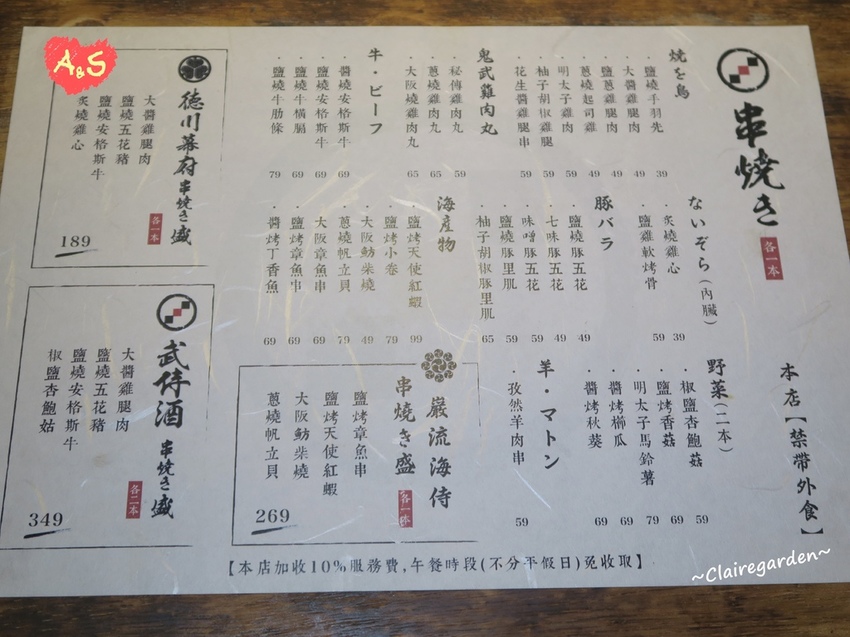 串燒き
各一本
本店【禁帶外食】
燒き鳥
·鹽燒手羽先 39
·大醬雞腿肉 49
·鹽蔥雞腿肉 49
·蔥燒起司雞 49
·明太子雞肉 59
·柚子胡椒雞腿 59
·花生醬雞腿串 59
鬼武雞肉丸
·秘傳雞肉丸 59
·蔥燒雞肉丸 65
·大阪燒雞肉丸 65
牛·ビーフ
·醬燒安格斯牛 69
·鹽燒安格斯牛 69
·鹽燒牛橫膈 69
·鹽燒牛肋條 79
ないぞら(內臟)
·炙燒雞心 39
·鹽雞軟烤骨 59
豚バラ
·鹽燒豚五花 49
·七味豚五花 49
·味噌豚五花 59
·鹽燒豚里肌 59
·柚子胡椒豚里肌 65
海産物
·鹽烤天使紅蝦 99
·鹽烤小卷 79
·大阪魴柴燒 49
·蔥燒帆立貝 79
·大阪章魚串 69
·鹽烤章魚串 69
·醬烤丁香魚 69
野菜(二本)
·椒鹽杏鮑菇 59
·鹽烤香菇 69
·明太子馬鈴薯 79
·醬烤櫛瓜 69
·醬烤秋葵 69
羊·マトン
·孜然羊肉串 59
巖流海侍
串燒き盛
各一本
鹽烤章魚串
鹽烤天使紅蝦
大阪魴柴燒
蔥燒帆立貝
269
德川幕府串燒き盛
各一本
大醬雞腿肉
鹽燒五花豬
鹽燒安格斯牛
炙燒雞心
189
武侍酒串燒き盛
各二本
大醬雞腿肉
鹽燒五花豬
鹽燒安格斯牛
椒鹽杏鮑菇
349
【本店加收10%服務費,午餐時段(不分平假日)免收取】
A&S
~Clairegarden~